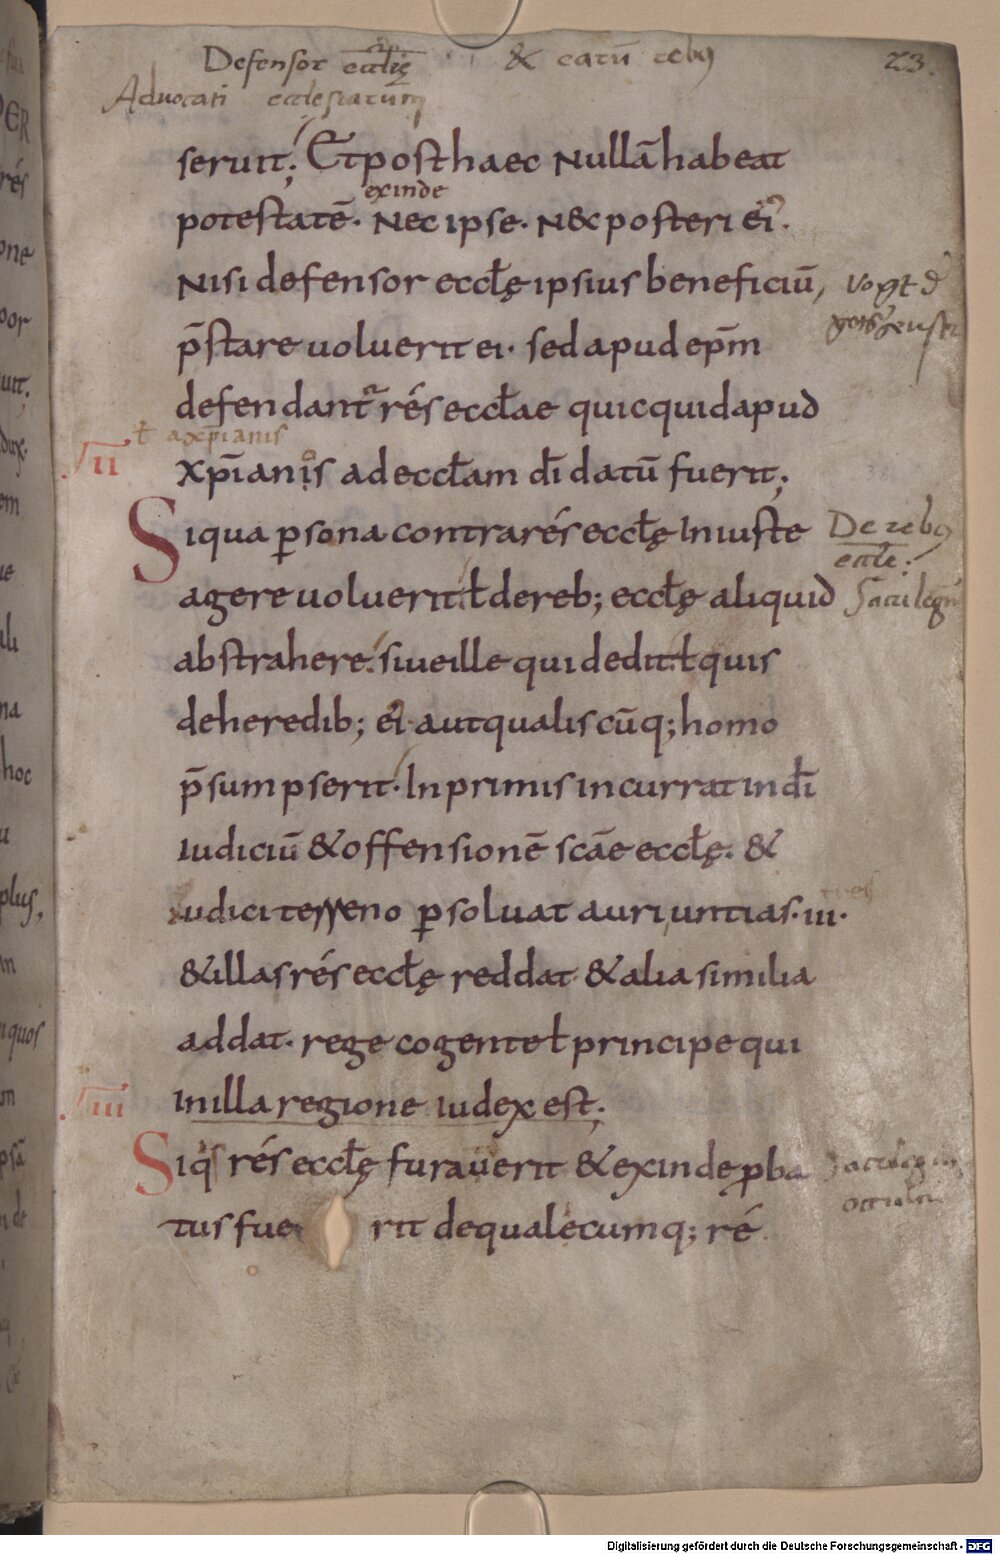 Defensor eccl̄ię & earū rebꝰ 23.
Advocati ecclesiarum
seruit; Et post haec Nullā habeat
exinde
potestatē. Nec ipse. N&c posteri ei᾽.
Nisi defensor eccłę ipsius beneficiū, Vogt
p̄stare uoluerit ei. sed apud ep̄m
defendant᾽ rés eccłae quicquid apud
ł a xp̄ianis
II xp̄ianis ad eccłam dī datū fuerit;
Siqua ꝑsona contra rés eccłę Iniuste De rebꝰ
eccle.
agere uoluerit ł de reb; eccłę aliquid Sacrilegiū
abstrahere. siue ille qui dedit. ł quis
de heredib; ei᾽. aut qualiscūq; homo
p̄sumpserit. In primis incurrat in dī
iudiciū & offensionē scāe eccłę. &
iudici terreno ꝑsoluat auri untias. III.
& illas rés eccłę reddat & alia similia
addat. rege cogente ł principe qui
III In illa regione iudex est;
Siqs rés eccłę furauerit & exinde ꝓba
tus fuerit de qualecumq; ré
Digitalisierung gefördert durch die Deutsche Forschungsgemeinschaft - DFG